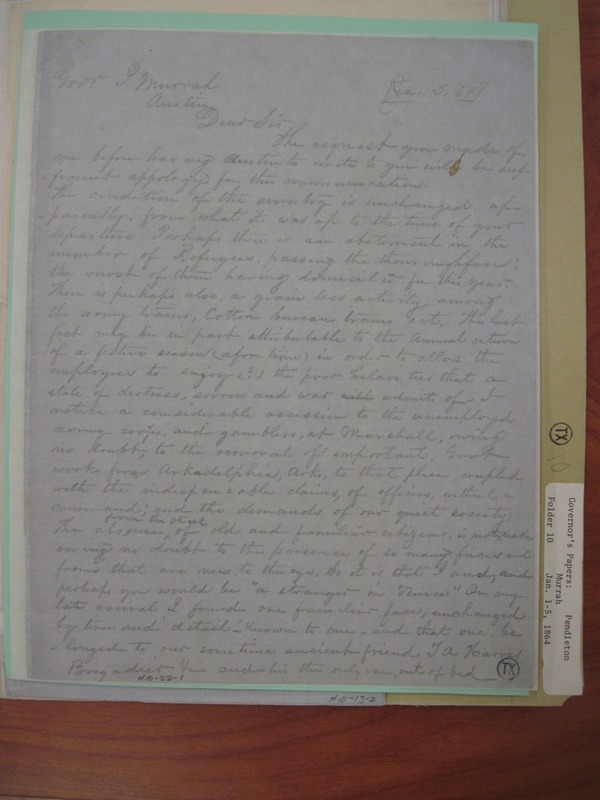 Govr P Murrah
Jan. 5, 64
Austin
Dear Sir
The request you made of
me before leaving Austin to write to you will be suf-
-ficient appology for this communication.
The condition of the country is unchanged ap-
-parently, from what it was up to the time of your
departure. Perhaps there is an abatement in the
number of Refugees, passing the thouroughfares;
the most of them having domiciled for this year.
There is perhaps also, a grain less activity among
the army trains, Cotton bureau trains &ct, This last
fact may be in part attributable to the Annual return
of a festive season (afore time) in order to allow the
employees to enjoy (?) the poor hilarities that a
state of distress, sorrow and war will admits of. I
notice a considerable accession to the unemployed
corps, and gamblers, at Marshall, owing
no doubt, to the removal of important Govt
works from Arkadelphia, Arks, to that place, coupled
with the indispensable claims, of officers, without a
command; and the demands of our quiet society,
from the street
The absence, of old and familiar citizens, is noticeable
owing no doubt to the presence of so many faces and
forms that are new, to the eye. So it is that I and, and
perhaps you would be "a stranger in Venice" On my
late arrival I found one familiar face, unchanged
by time and details - known to me - and that one, be
-longed to our sometime ancient friend J A Harris
Brigadeer and his the only one, out of bed
H10-22-1
H10-19-2
TX
TX
10
Governor's Papers: Pendleton
Murrah
Folder 10 Jan. 1-5, 1864